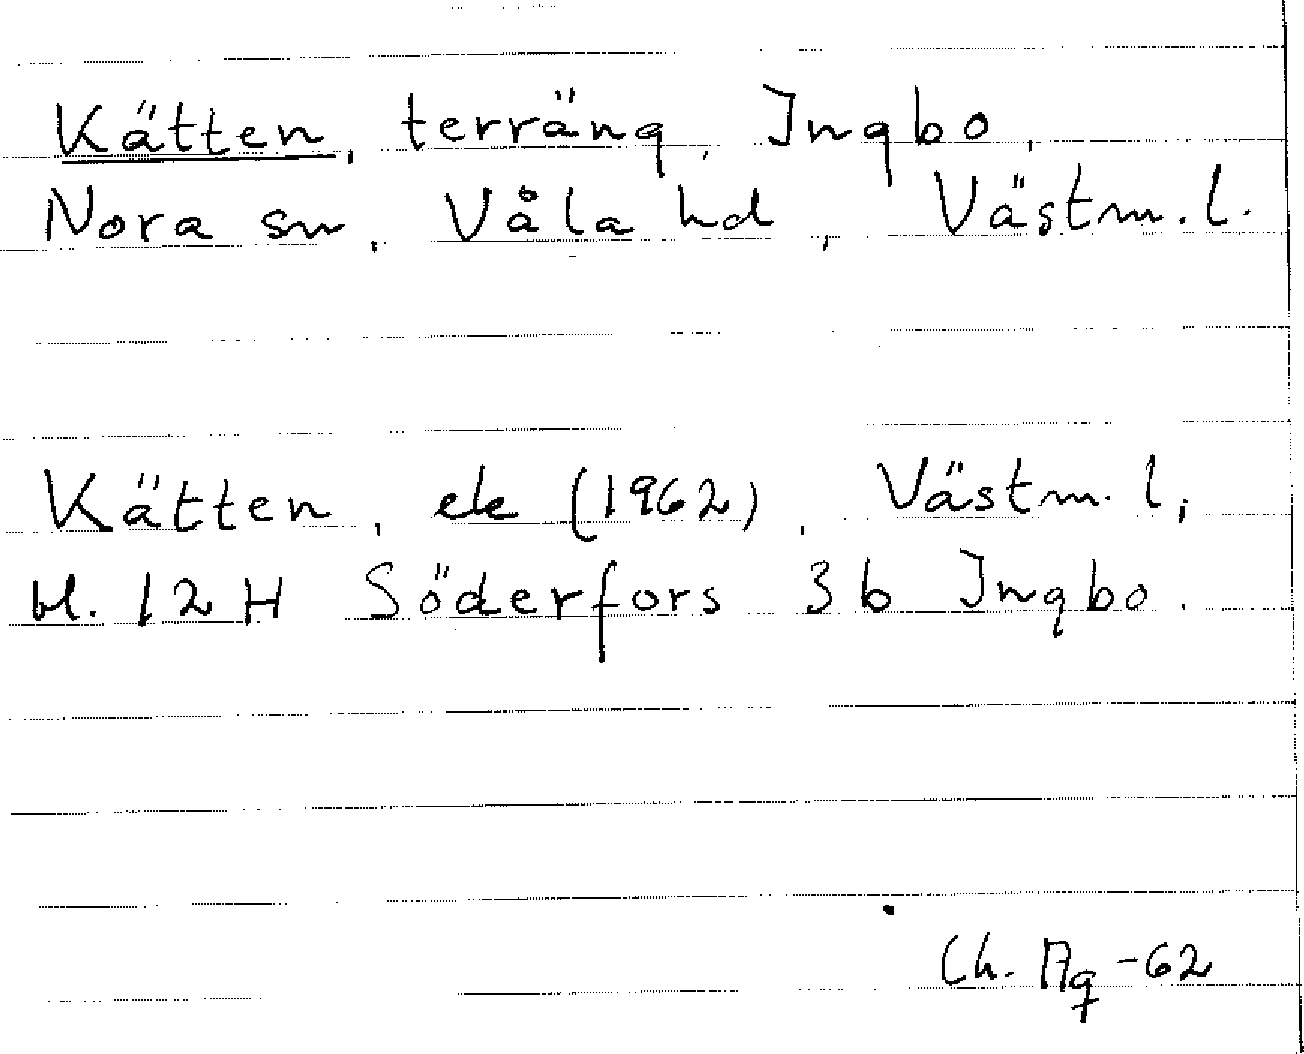 Kätten, terräng, Ingbo,
Nora sn, Våla hd, Västm. l.
Kätten, ek (1962), Västm. l,
bl. 12H Söderfors 3b Ingbo.
Ch. -62